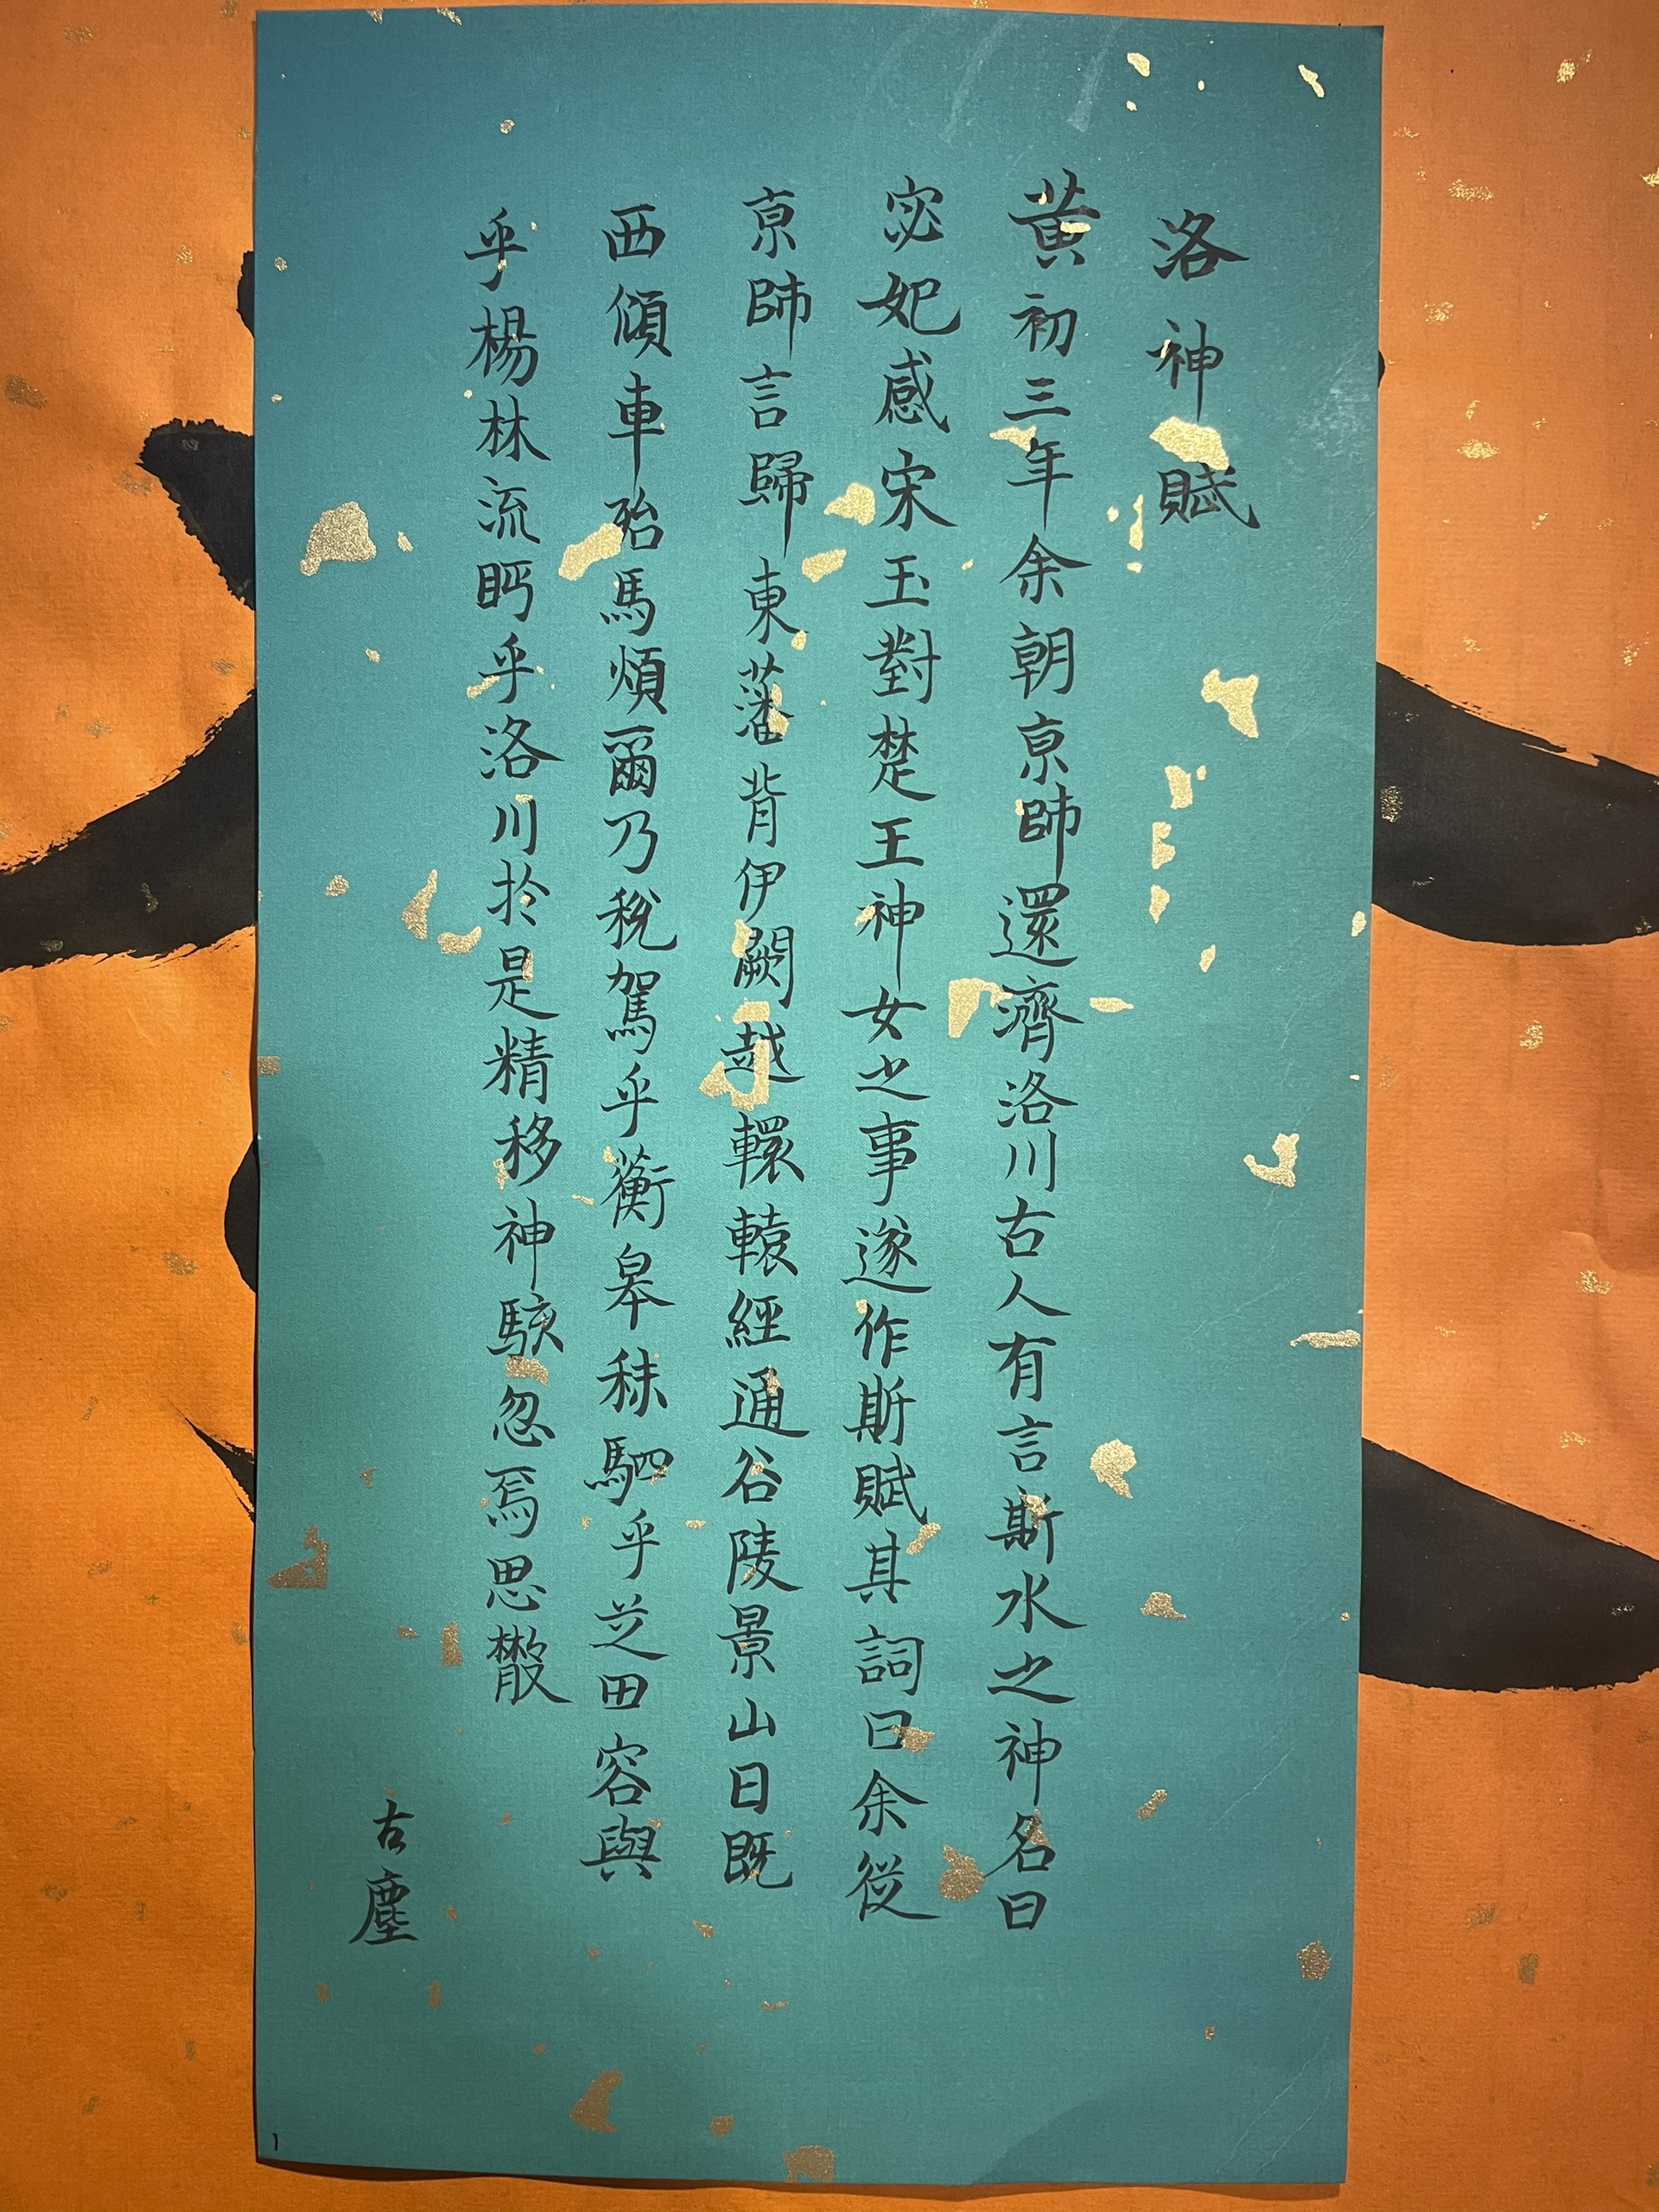 洛神賦
黃初三年余朝京師還濟洛川古人有言斯水之神名曰
宓妃感宋玉對楚王神女之事遂作斯賦其詞曰余從
京師言歸東藩背伊闕越轘轅經通谷陵景山日既
西傾車殆馬煩爾乃稅駕乎蘅皋秣駟乎芝田容與
乎楊林流眄乎洛川於是精移神駭忽焉思散
古塵
1